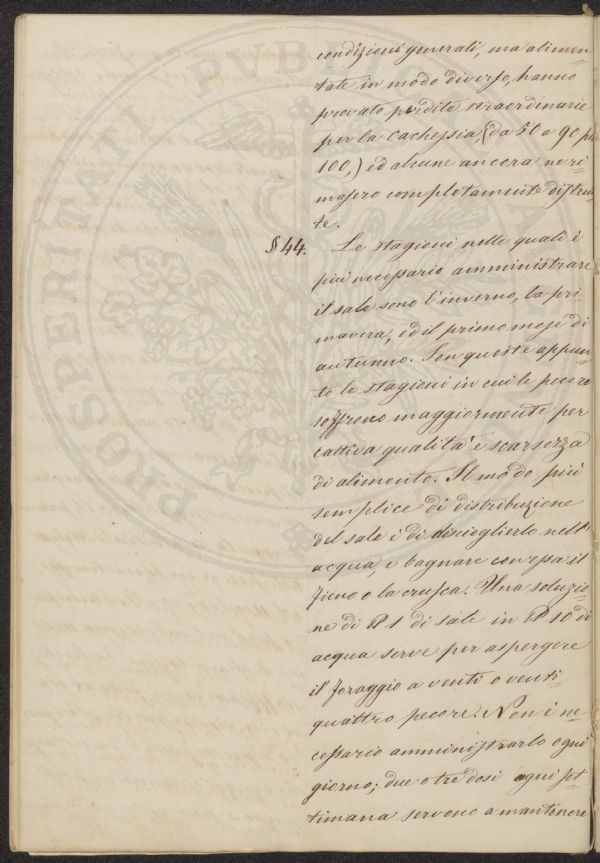 condizioni generali, ma alimen=
tate in modo diverso, hanno
provato perdite straordinarie
per la cachessia, (da 50 a 90 per
100,) ed alcune ancora ne ri=
masero completamente distrut=
te.
§ 44. Le stagioni nelle quali è
più necessario amministrare
il sale sono l'inverno, la pri
mavera, ed il primo mese di
autunno. Son queste appun=
to le stagioni in cui le pecore
soffrono maggiormente per
cattiva qualità e scarsezza
di alimento. Il modo più
semplice di distribuzione
del sale è di discioglierlo nell'
acqua, e bagnare con essa il
fieno o la crusca. Una soluzio=
ne di 1 di sale in 10 di
acqua serve per aspergere
il foraggio a venti o venti=
quattro pecore. Non è ne=
cessario amministrarlo ogni
giorno; due o tre dosi ogni set=
timana servono a mantenere
PROSPERITATI PVBLICAE